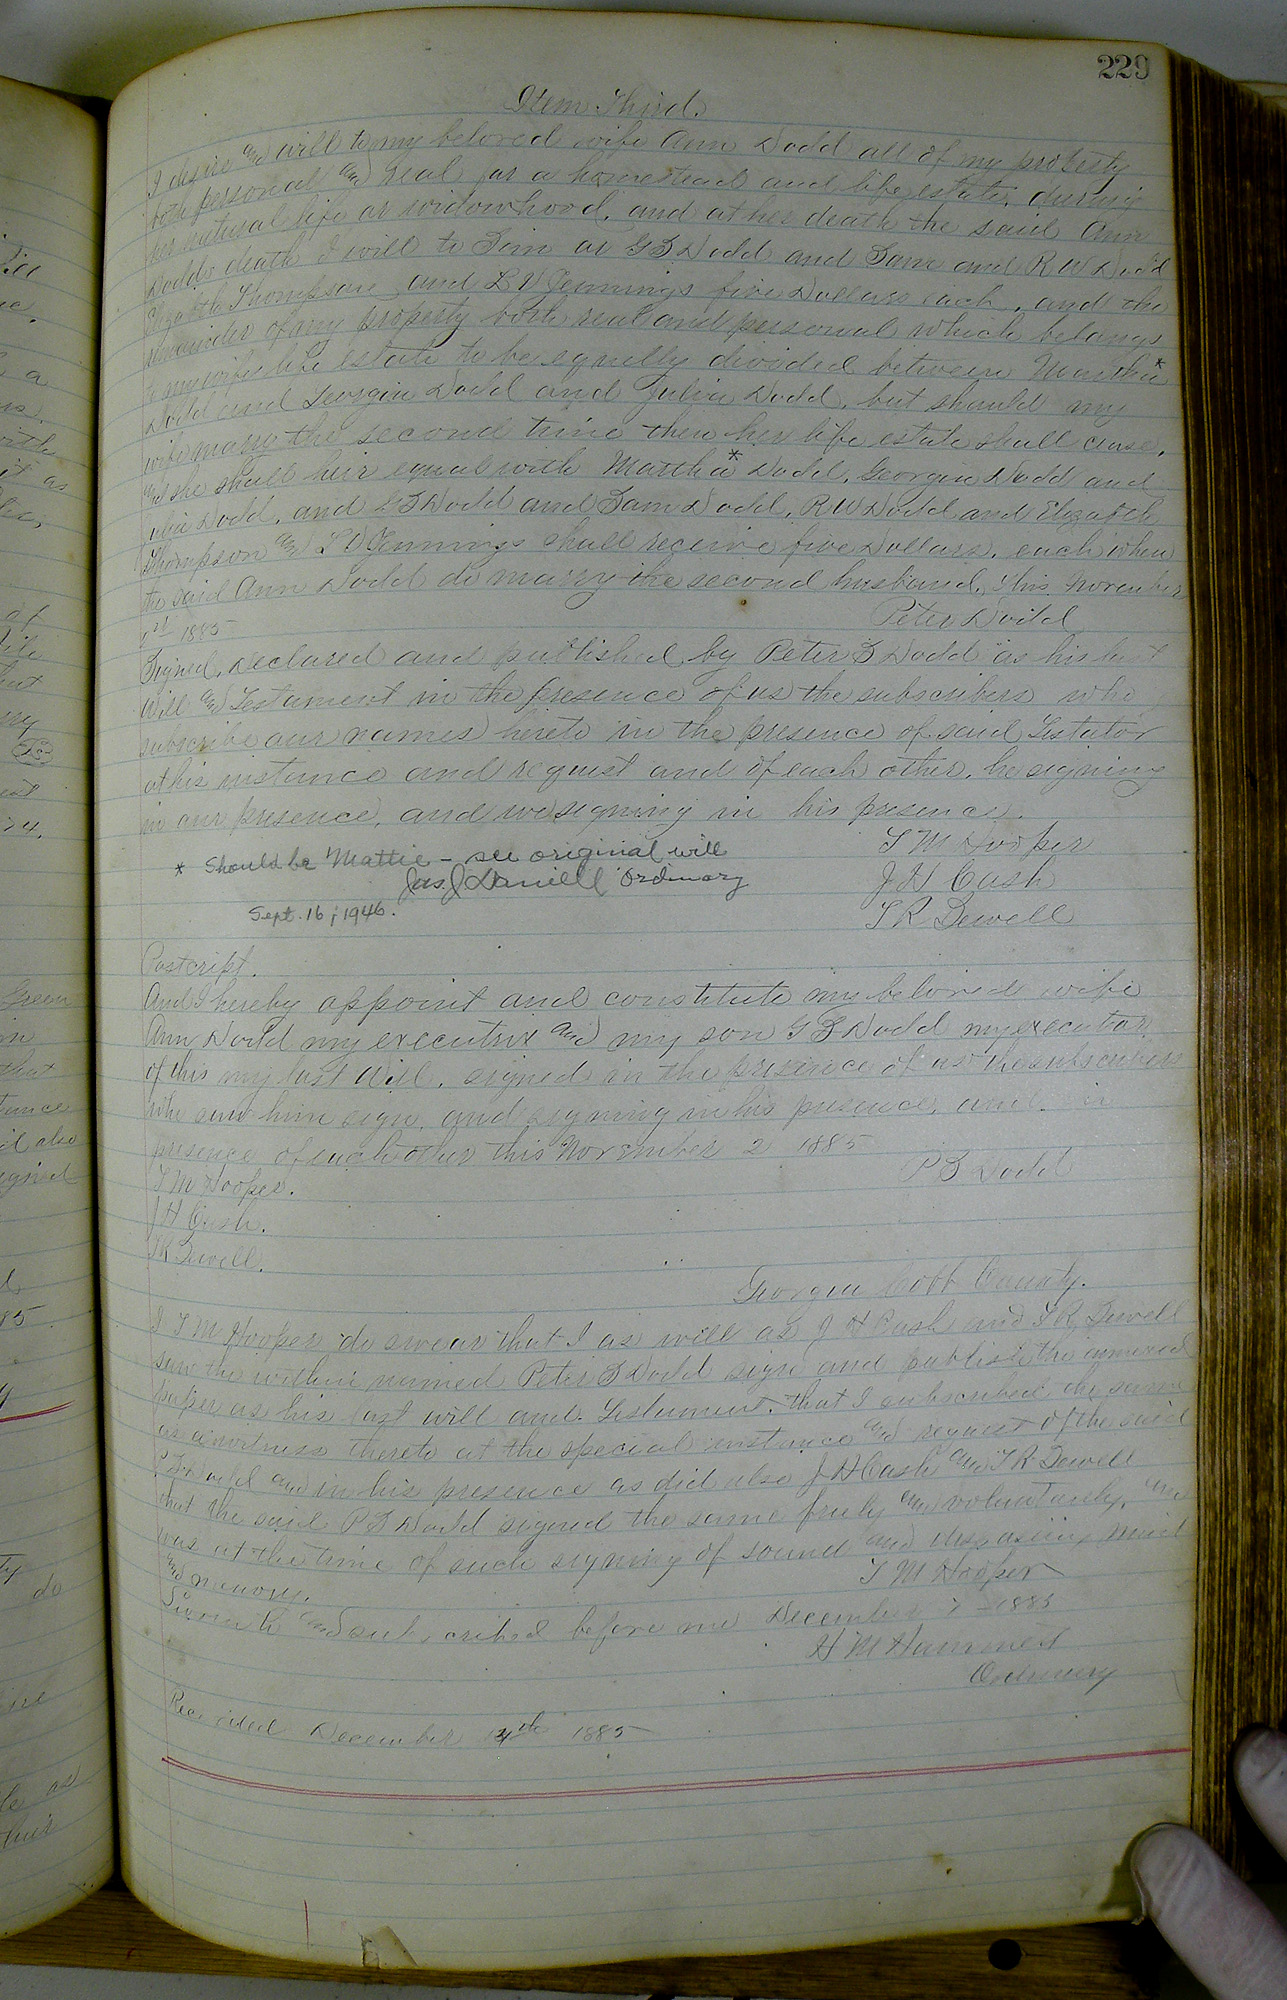 229
Item Third.
I desire and will to my beloved wife Ann Dodd all of my property
both personal and real for a homestead and life estate, during
her natural life or widowhood, and at her death the said Ann
Dodds death I will to Tim or G T Dodd and Sam and R W Dodd
Elizabeth Thompson and L V Jennings five Dollars each, and the
remainder of my property both real and personal which belongs
to my wifes life estate to be equally divided between Martha*
Dodd and Georgia Dodd and Julia Dodd, but should my
wife marry the second time then her life estate shall cease,
and she shall heir equal with Martha* Dodd, Georgia Dodd and
Julia Dodd, and G T Dodd and Sam Dodd, R W Dodd and Elizabeth
Thompson and L V Jennings shall receive five Dollars, each when
the said Ann Dodd do marry the second husband, this November
1885
Peter Dodd
Signed, declared and published by Peter T Dodd as his last
Will and Testament in the presence of us the subscribers who
subscribe our names hereto in the presence of said Testator
at his instance and request and of each other, he signing
in our presence, and we signing in his presence.
T M Hooper
J H Cash
T R Sewell
* Should be Mattie - see original will
Jas. J Daniell Ordinary
Sept. 16, 1946.
Postcript.
And I hereby appoint and constitute my beloved wife
Ann Dodd my executrix and my son G T Dodd my executor
of this my last Will, signed in the presence of us the subscribers
who saw him sign, and signing in his presence, and in
presence of each other this November 2 1885
P T Dodd
T M Hooper.
J H Cash.
T R Sewell.
Georgia Cobb County.
I T M Hooper do swear that I as well as J H Cash and T R Sewell
saw the within named Peter T Dodd sign and publish the annexed
paper as his last will and Testament, that I subscribed the same
as a witness thereto at the special instance and request of the said
P T Dodd and in his presence as did also J H Cash and T R Sewell
that the said P T Dodd signed the same freely and voluntarily, and
was at the time of such signing of sound and disposing mind
and memory.
T M Hooper
Sworn to and subscribed before me December 7 1885
H M Hammett
Ordinary
Recorded December 1885